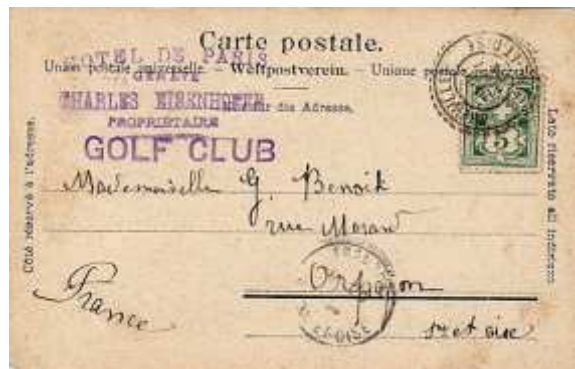 Carte postale.
Union postale universelle. – Weltpostverein. – Unione postale universale
HOTEL DE PARIS
CHARLES EISENHOFER
Nur für die Adresse.
PROPRIÉTAIRE
GOLF CLUB
Côté réservé à l'adresse.
Lato riservato all indirizzo
5
Mademoiselle G. Benoit
rue Morand
Arpajon
France
S. et oise